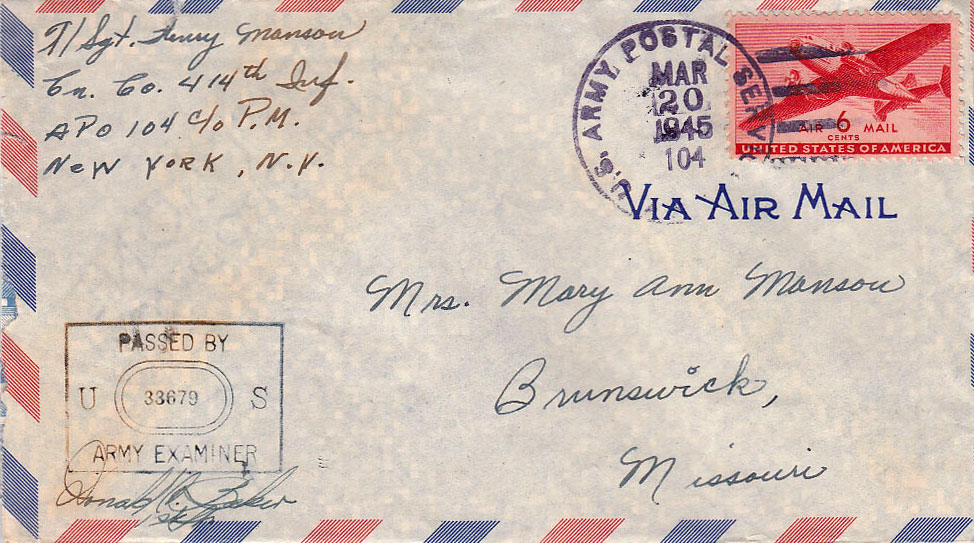 T/Sgt. Henry Manson
Cn. Co. 414th Inf.
APO 104 c/o P.M.
New York, N.Y.
U.S. ARMY POSTAL SERVICE
MAR
20
1945
104
AIR 6 MAIL
CENTS
UNITED STATES OF AMERICA
VIA AIR MAIL
Mrs. Mary Ann Manson
Brunswick,
Missouri
PASSED BY
U 33679 S
ARMY EXAMINER
Donald